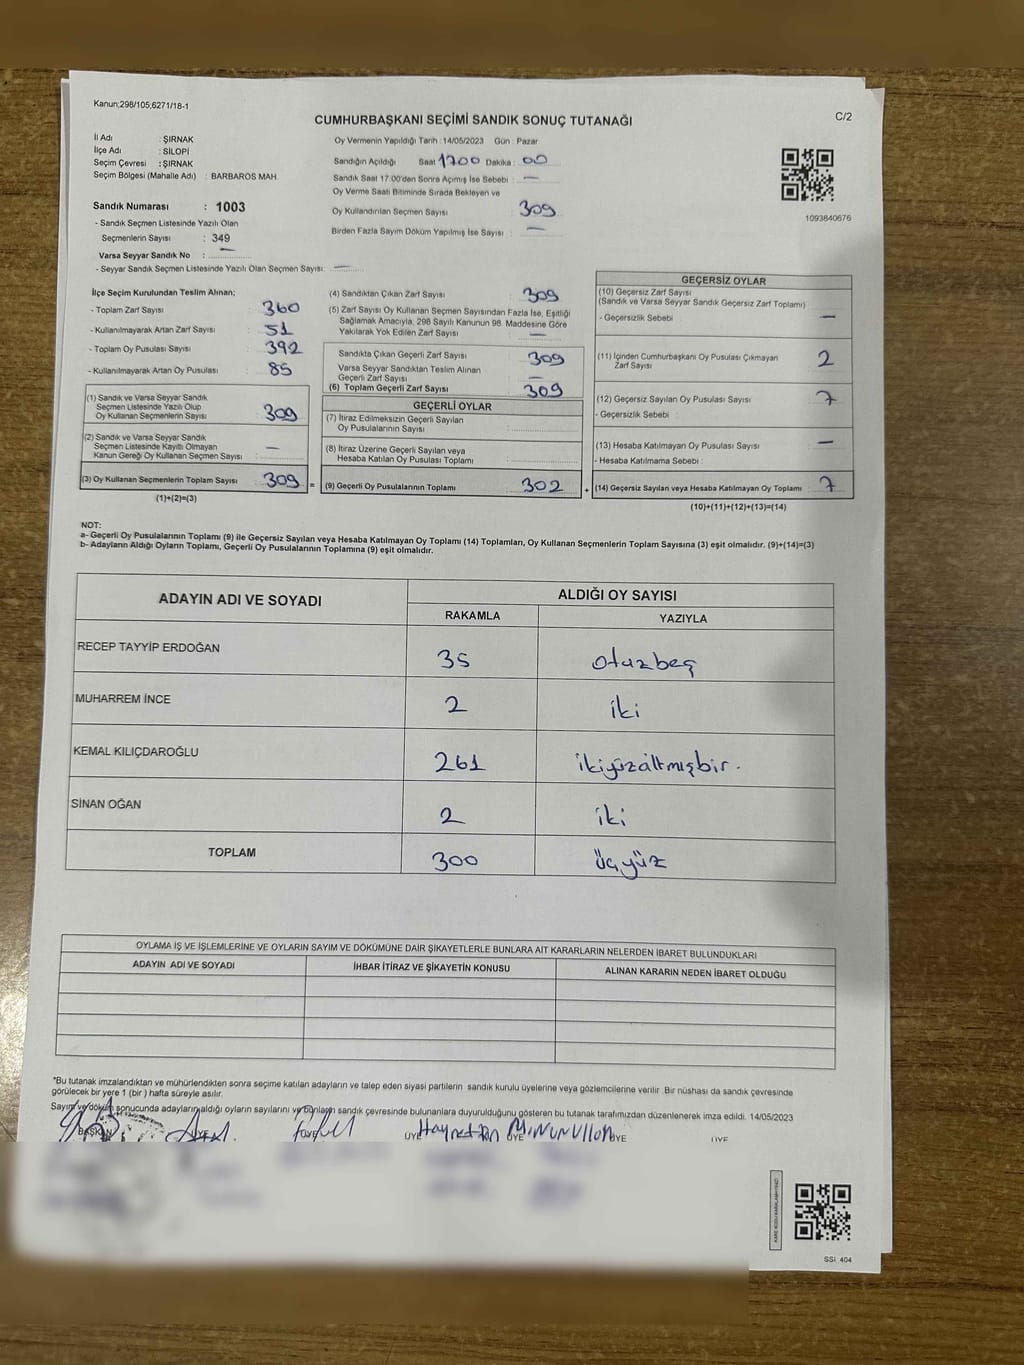 Kanun;298/105,6271/18-1
C/2
CUMHURBAŞKANI SEÇİMİ SANDIK SONUÇ TUTANAĞI
İl Adı : ŞIRNAK
İlçe Adı : SİLOPİ
Seçim Çevresi : ŞIRNAK
Seçim Bölgesi (Mahalle Adı) : BARBAROS MAH.
Sandık Numarası : 1003
- Sandık Seçmen Listesinde Yazılı Olan
Seçmenlerin Sayısı : 349
Varsa Seyyar Sandık No : —
- Seyyar Sandık Seçmen Listesinde Yazılı Olan Seçmen Sayısı: —
Oy Vermenin Yapıldığı Tarih : 14/05/2023 Gün : Pazar
Sandığın Açıldığı Saat 1700 Dakika : 00
Sandık Saat 17:00'den Sonra Açımış İse Sebebi : —
Oy Verme Saati Bitiminde Sırada Bekleyen ve
Oy Kullandırılan Seçmen Sayısı 309
Birden Fazla Sayım Döküm Yapılmış İse Sayısı : —
1093840676
İlçe Seçim Kurulundan Teslim Alınan;
- Toplam Zarf Sayısı : 360
- Kullanılmayarak Artan Zarf Sayısı : 51
- Toplam Oy Pusulası Sayısı : 392
- Kullanılmayarak Artan Oy Pusulası : 85
(1) Sandık ve Varsa Seyyar Sandık
Seçmen Listesinde Yazılı Olup
Oy Kullanan Seçmenlerin Sayısı : 309
(2) Sandık ve Varsa Seyyar Sandık
Seçmen Listesinde Kayıtlı Olmayan
Kanun Gereği Oy Kullanan Seçmen Sayısı : —
(3) Oy Kullanan Seçmenlerin Toplam Sayısı : 309 =
(1)+(2)=(3)
(4) Sandıktan Çıkan Zarf Sayısı : 309
(5) Zarf Sayısı Oy Kullanan Seçmen Sayısından Fazla İse, Eşitliği
Sağlamak Amacıyla, 298 Sayılı Kanunun 98. Maddesine Göre
Yakılarak Yok Edilen Zarf Sayısı : —
Sandıkta Çıkan Geçerli Zarf Sayısı : 309
Varsa Seyyar Sandıktan Teslim Alınan
Geçerli Zarf Sayısı : —
(6) Toplam Geçerli Zarf Sayısı : 309
GEÇERLİ OYLAR
(7) İtiraz Edilmeksizin Geçerli Sayılan
Oy Pusulasının Sayısı :
(8) İtiraz Üzerine Geçerli Sayılan veya
Hesaba Katılan Oy Pusulası Toplamı :
(9) Geçerli Oy Pusulalarının Toplamı : 302 +
GEÇERSİZ OYLAR
(10) Geçersiz Zarf Sayısı
(Sandık ve Varsa Seyyar Sandık Geçersiz Zarf Toplamı)
- Geçersizlik Sebebi : —
(11) İçinden Cumhurbaşkanı Oy Pusulası Çıkmayan
Zarf Sayısı : 2
(12) Geçersiz Sayılan Oy Pusulası Sayısı : 7
- Geçersizlik Sebebi :
(13) Hesaba Katılmayan Oy Pusulası Sayısı : —
- Hesaba Katılmama Sebebi :
(14) Geçersiz Sayılan veya Hesaba Katılmayan Oy Toplamı : 7
(10)+(11)+(12)+(13)=(14)
NOT:
a- Geçerli Oy Pusulalarının Toplamı (9) ile Geçersiz Sayılan veya Hesaba Katılmayan Oy Toplamı (14) Toplamları, Oy Kullanan Seçmenlerin Toplam Sayısına (3) eşit olmalıdır. (9)+(14)=(3)
b- Adayların Aldığı Oyların Toplamı, Geçerli Oy Pusulalarının Toplamına (9) eşit olmalıdır.
ADAYIN ADI VE SOYADI
ALDIĞI OY SAYISI
RAKAMLA YAZIYLA
RECEP TAYYİP ERDOĞAN 35 otuzbeş
MUHARREM İNCE 2 iki
KEMAL KILIÇDAROĞLU 261 ikiyüzaltmışbir.
SİNAN OĞAN 2 iki
TOPLAM 300 üçyüz
OYLAMA İŞ VE İŞLEMLERİNE VE OYLARIN SAYIM VE DÖKÜMÜNE DAİR ŞİKAYETLERLE BUNLARA AİT KARARLARIN NELERDEN İBARET BULUNDUKLARI
ADAYIN ADI VE SOYADI İHBAR İTİRAZ VE ŞİKAYETİN KONUSU ALINAN KARARIN NEDEN İBARET OLDUĞU
*Bu tutanak imzalandıktan ve mühürlendikten sonra seçime katılan adayların ve talep eden siyasi partilerin sandık kurulu üyelerine veya gözlemcilerine verilir. Bir nüshası da sandık çevresinde
görülecek bir yere 1 (bir) hafta süreyle asılır.
Sayım ve döküm sonucunda adayların aldığı oyların sayılarını ve bunların sandık çevresinde bulunanlara duyurulduğunu gösteren bu tutanak tarafımızdan düzenlenerek imza edildi. 14/05/2023
BAŞKAN ÜYE ÜYE ÜYE ÜYE ÜYE ÜYE
SSİ 404